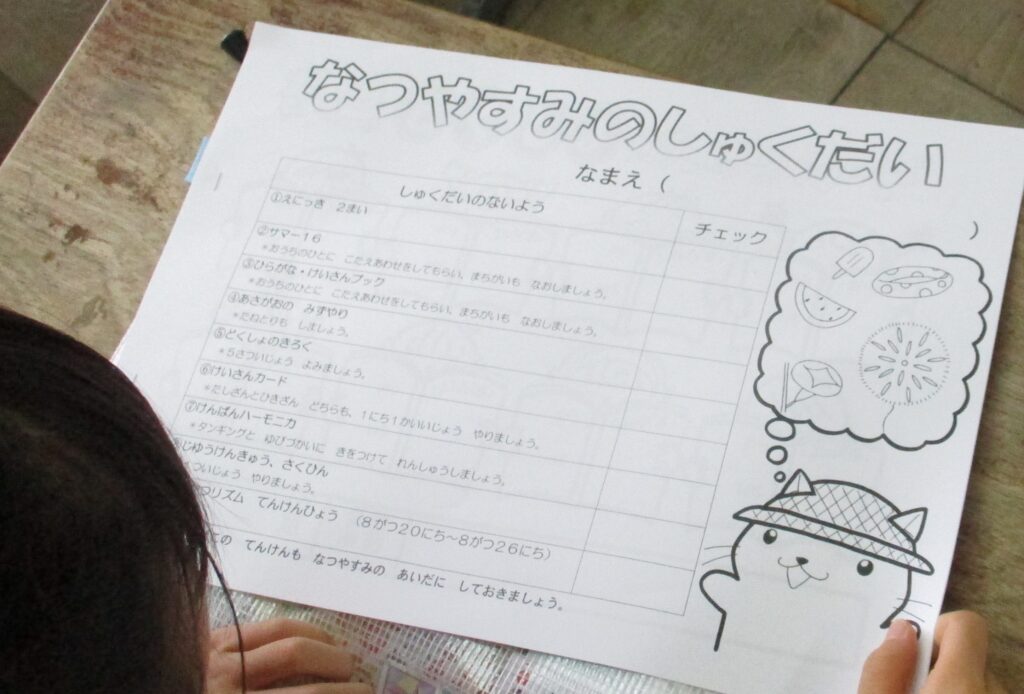 なつやすみのしゅくだい
なまえ（　　　）
しゅくだいのないよう　チェック
①えにっき　2まい
②サマー16
＊おうちのひとに　こたえあわせをしてもらい、まちがいも　なおしましょう。
③ひらがな・けいさんブック
＊おうちのひとに　こたえあわせをしてもらい、まちがいも　なおしましょう。
④あさがおの　みずやり
＊たねとりも　しましょう。
⑤どくしょのきろく
＊5さついじょう　よみましょう。
⑥けいさんカード
＊たしざんとひきざん　どちらも、1にち1かいいじょう　やりましょう。
⑦けんばんハーモニカ
＊タンギングと　ゆびづかいに　きをつけて　れんしゅうしましょう。
じゆうけんきゅう、さくひん
ついじょう　やりましょう。
リズム　てんけんひょう　（8がつ20にち～8がつ26にち）
の　てんけんも　なつやすみの　あいだに　しておきましょう。